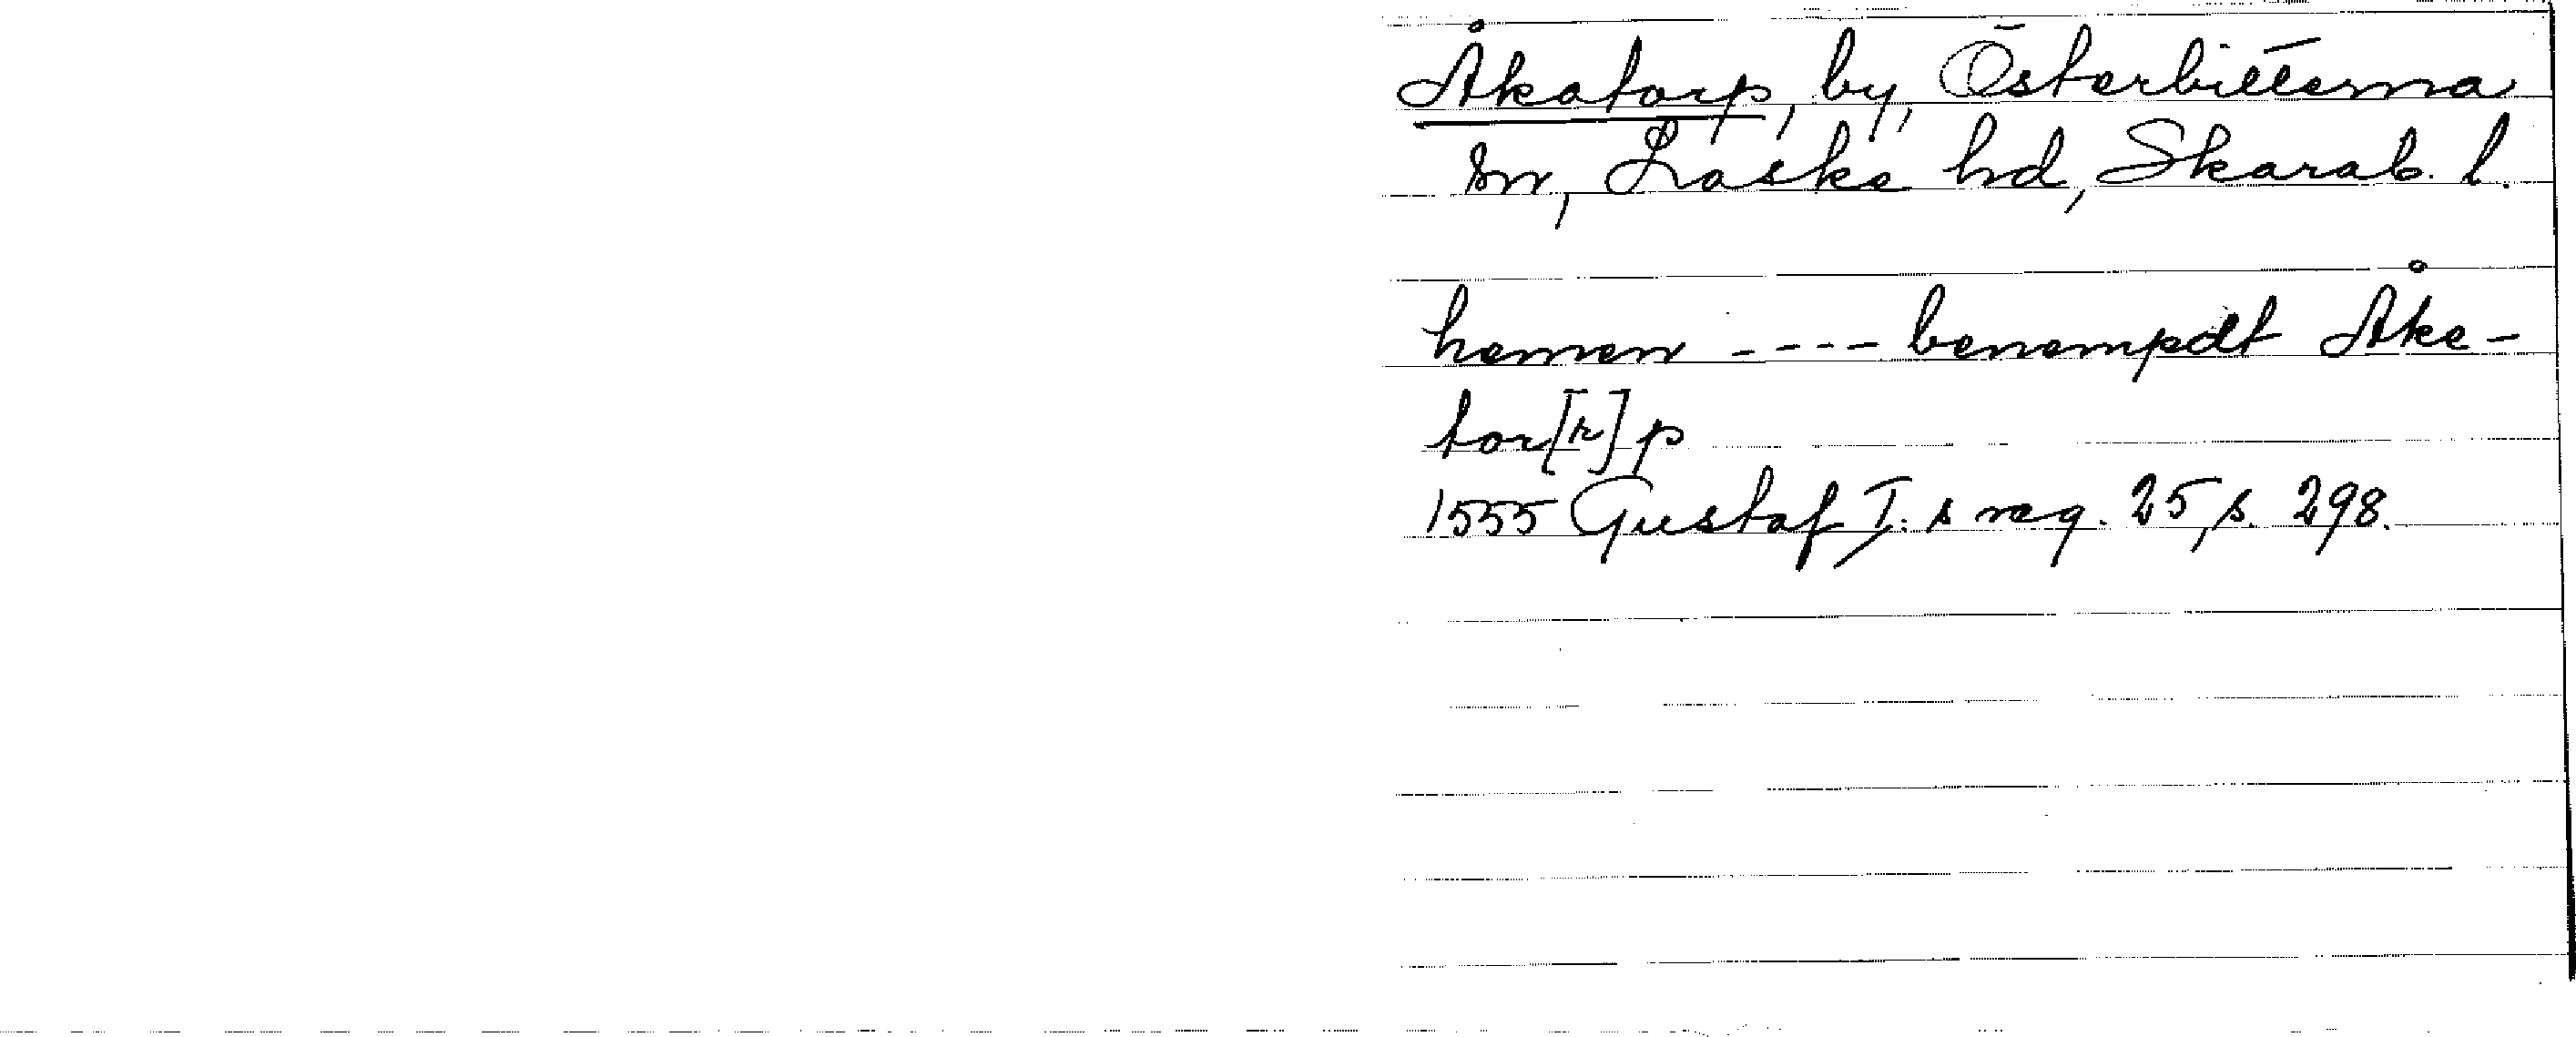 Åkatorp, by, Österbitterna
sn, Laske hd, Skarab. l.
hemen ---- benempdt Åke-
tor[r]p
1555 Gustaf I:s reg. 25, s. 298.